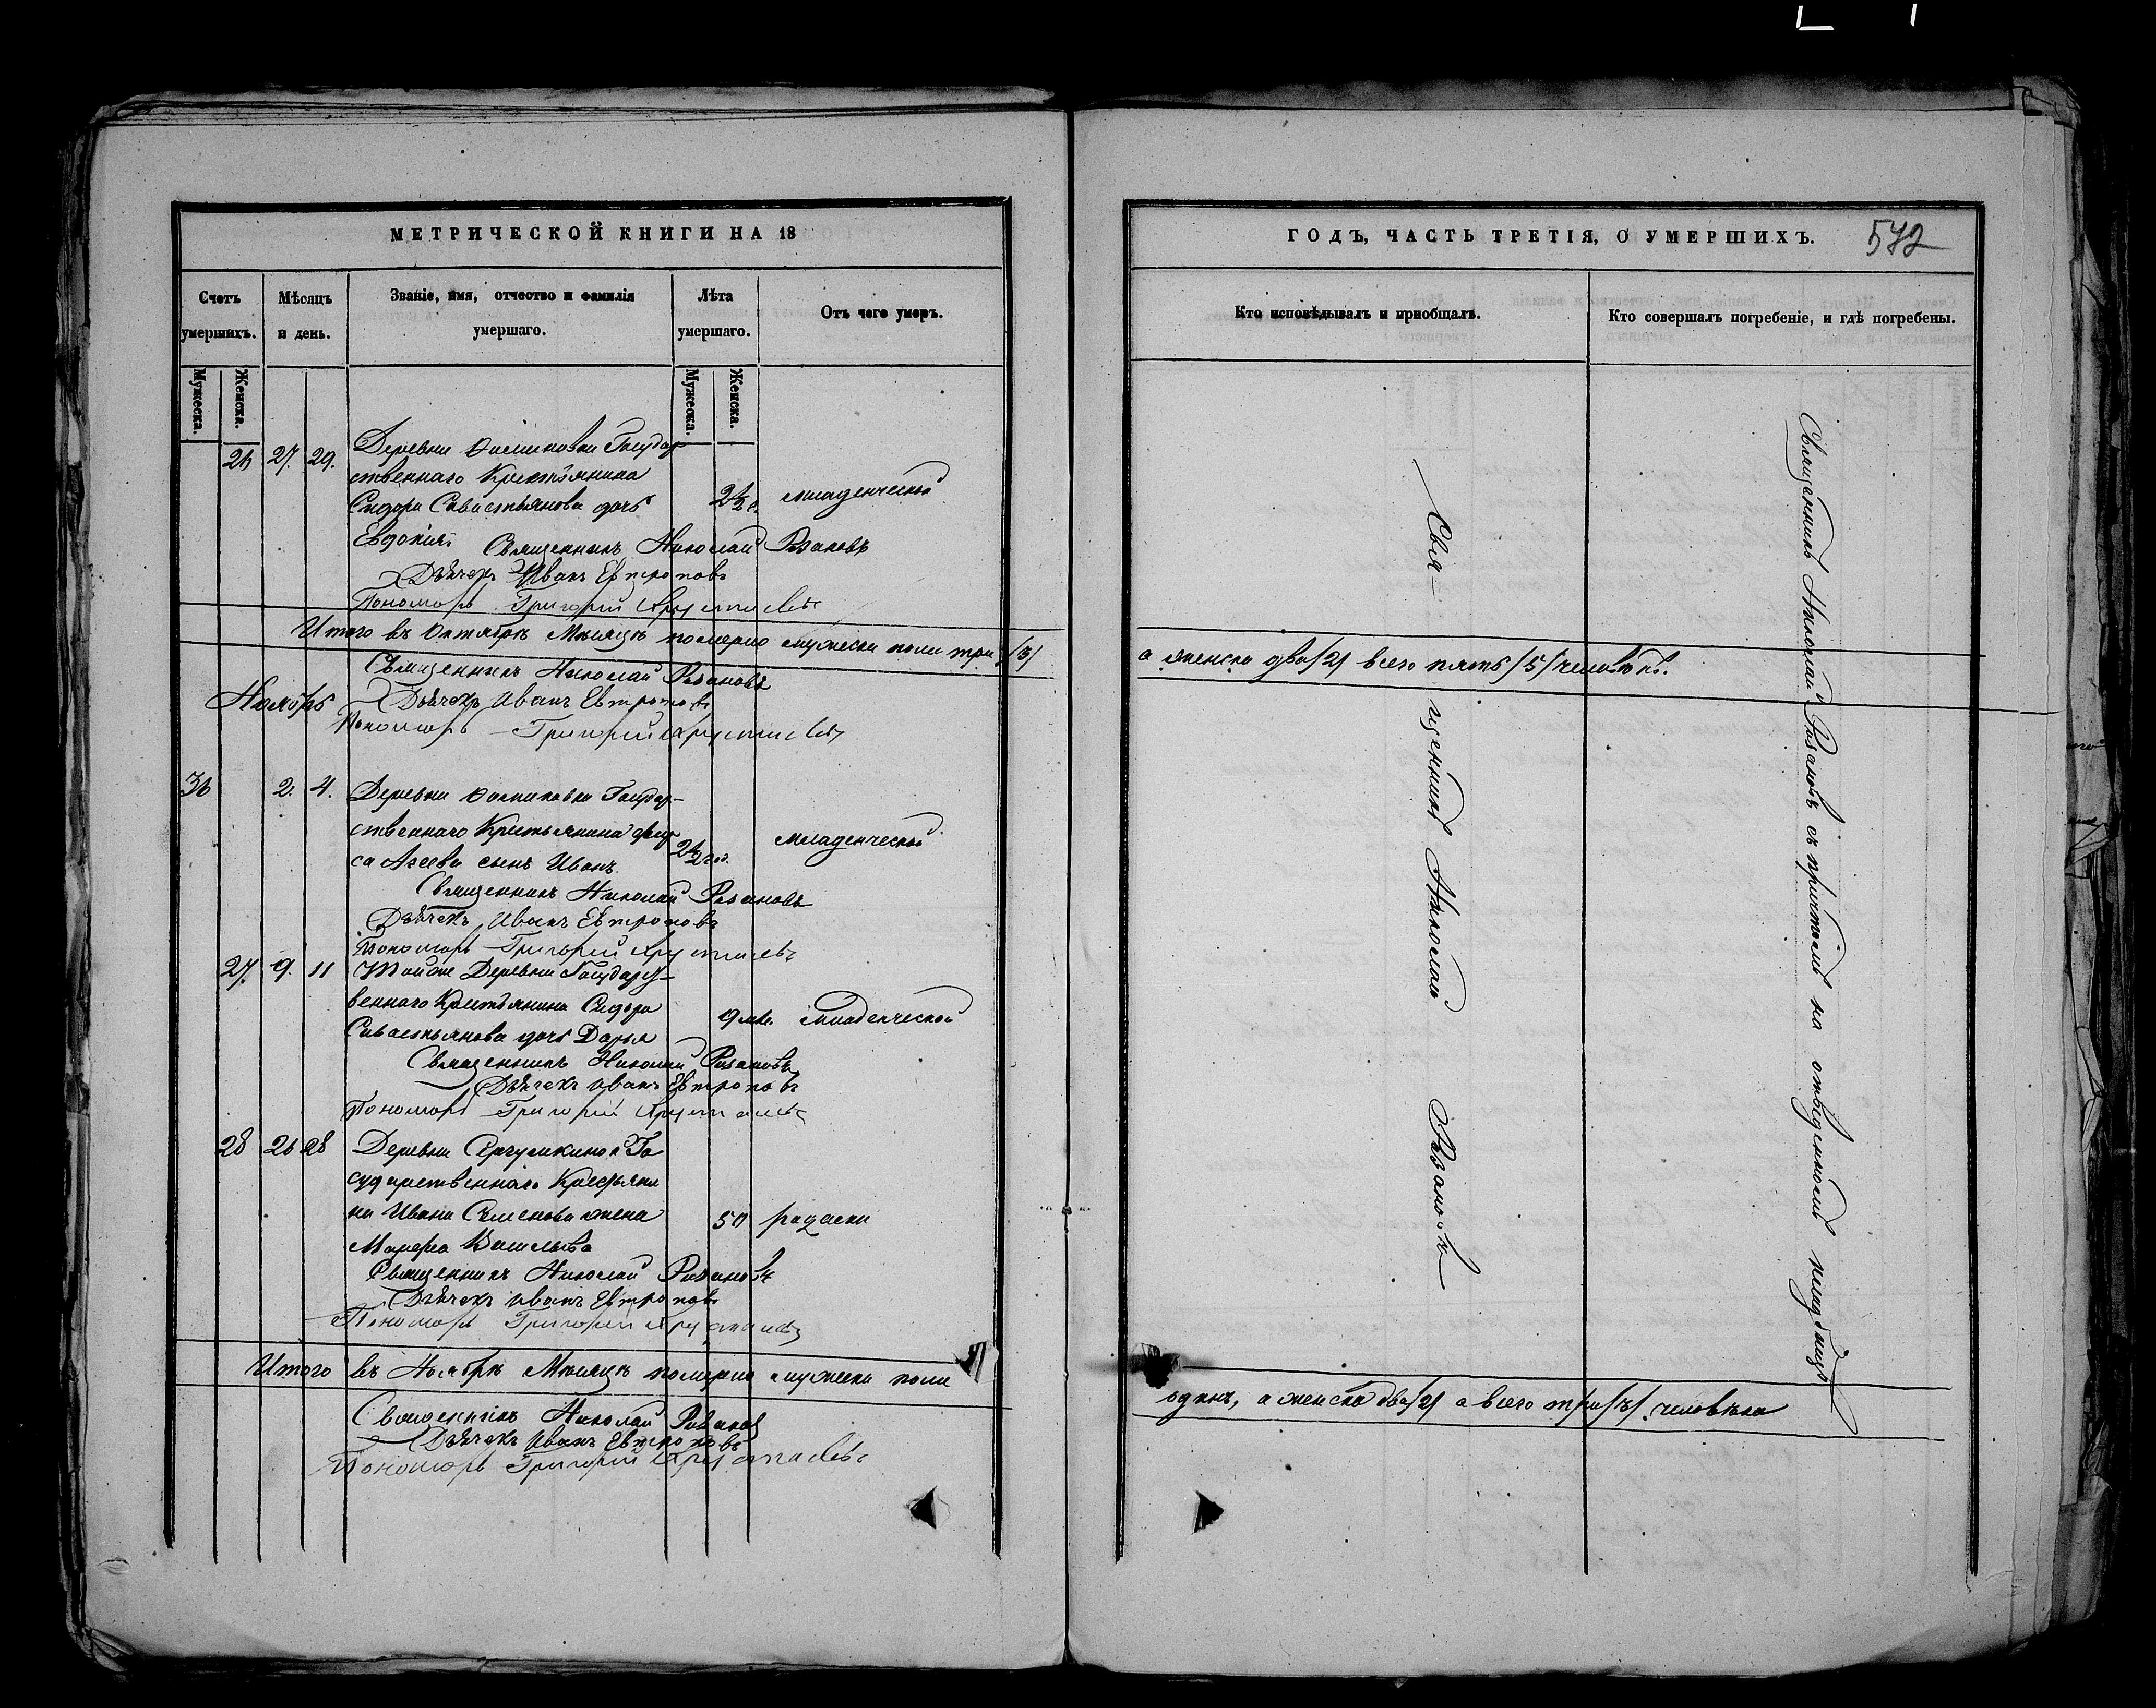 МЕТРИЧЕСКОЙ КНИГИ НА 18
Счетъ умершихъ.
Мѣсяцъ и день.
Званіе, имя, отчество и фамилія умершаго.
Лѣта умершаго.
Отъ чего умеръ.
Мужеска.
Женска.
Мужеска.
Женска.
26 27. 29. Деревни Государ-
ственнаго Крестьянина
Сидора Савастьянова дочь 2½ г. младенческой
Евдокия.
Священникъ Николай Розановъ
Дьячекъ Иванъ Евтроповъ
Пономарь Григорій Хрусталевъ
Итого въ Октябрѣ Мѣсяцѣ померло мужеска пола три /3/
Священникъ Николай Розановъ
Ноябрь
Дьячекъ Иванъ Евтроповъ
Пономарь Григорій Хрусталевъ
36 2. 4. Деревни Государ-
ственнаго Крестьянина
са Агеева сынъ Иванъ 2½ год. младенческой
Священникъ Николай Розановъ
Дьячекъ Иванъ Евтроповъ
Пономарь Григорій Хрусталевъ
27. 9. 11 Тойже Деревни Государст-
веннаго Крестьянина Сидора
Савастьянова дочь Дарья 9 мѣ. младенческой
Священникъ Николай Розановъ
Дьячекъ Иванъ Евтроповъ
Пономарь Григорій Хрусталевъ
28 26 28 Деревни Го
сударственнаго Крестьяни
на Ивана Семенова жена 50
Марфа Васильева
Священникъ Николай Розановъ
Дьячекъ Иванъ Евтроповъ
Пономарь Григорій Хрусталевъ
Итого въ Ноябрѣ Мѣсяцѣ померло мужеска пола
Священникъ Николай Розановъ
Дьячекъ Иванъ Евтроповъ
Пономарь Григорій Хрусталевъ
ГОДЪ, ЧАСТЬ ТРЕТІЯ, О УМЕРШИХЪ.
572
Кто исповѣдывалъ и пріобщалъ.
Кто совершалъ погребеніе, и гдѣ погребены.
Священникъ Николай Розановъ
Священникъ Николай Розановъ съ причтомъ на отведенномъ кладбищѣ
а женска два /2/ всего пять /5/ человѣкъ.
одинъ, а женска два /2/ а всего три /3/ человѣка